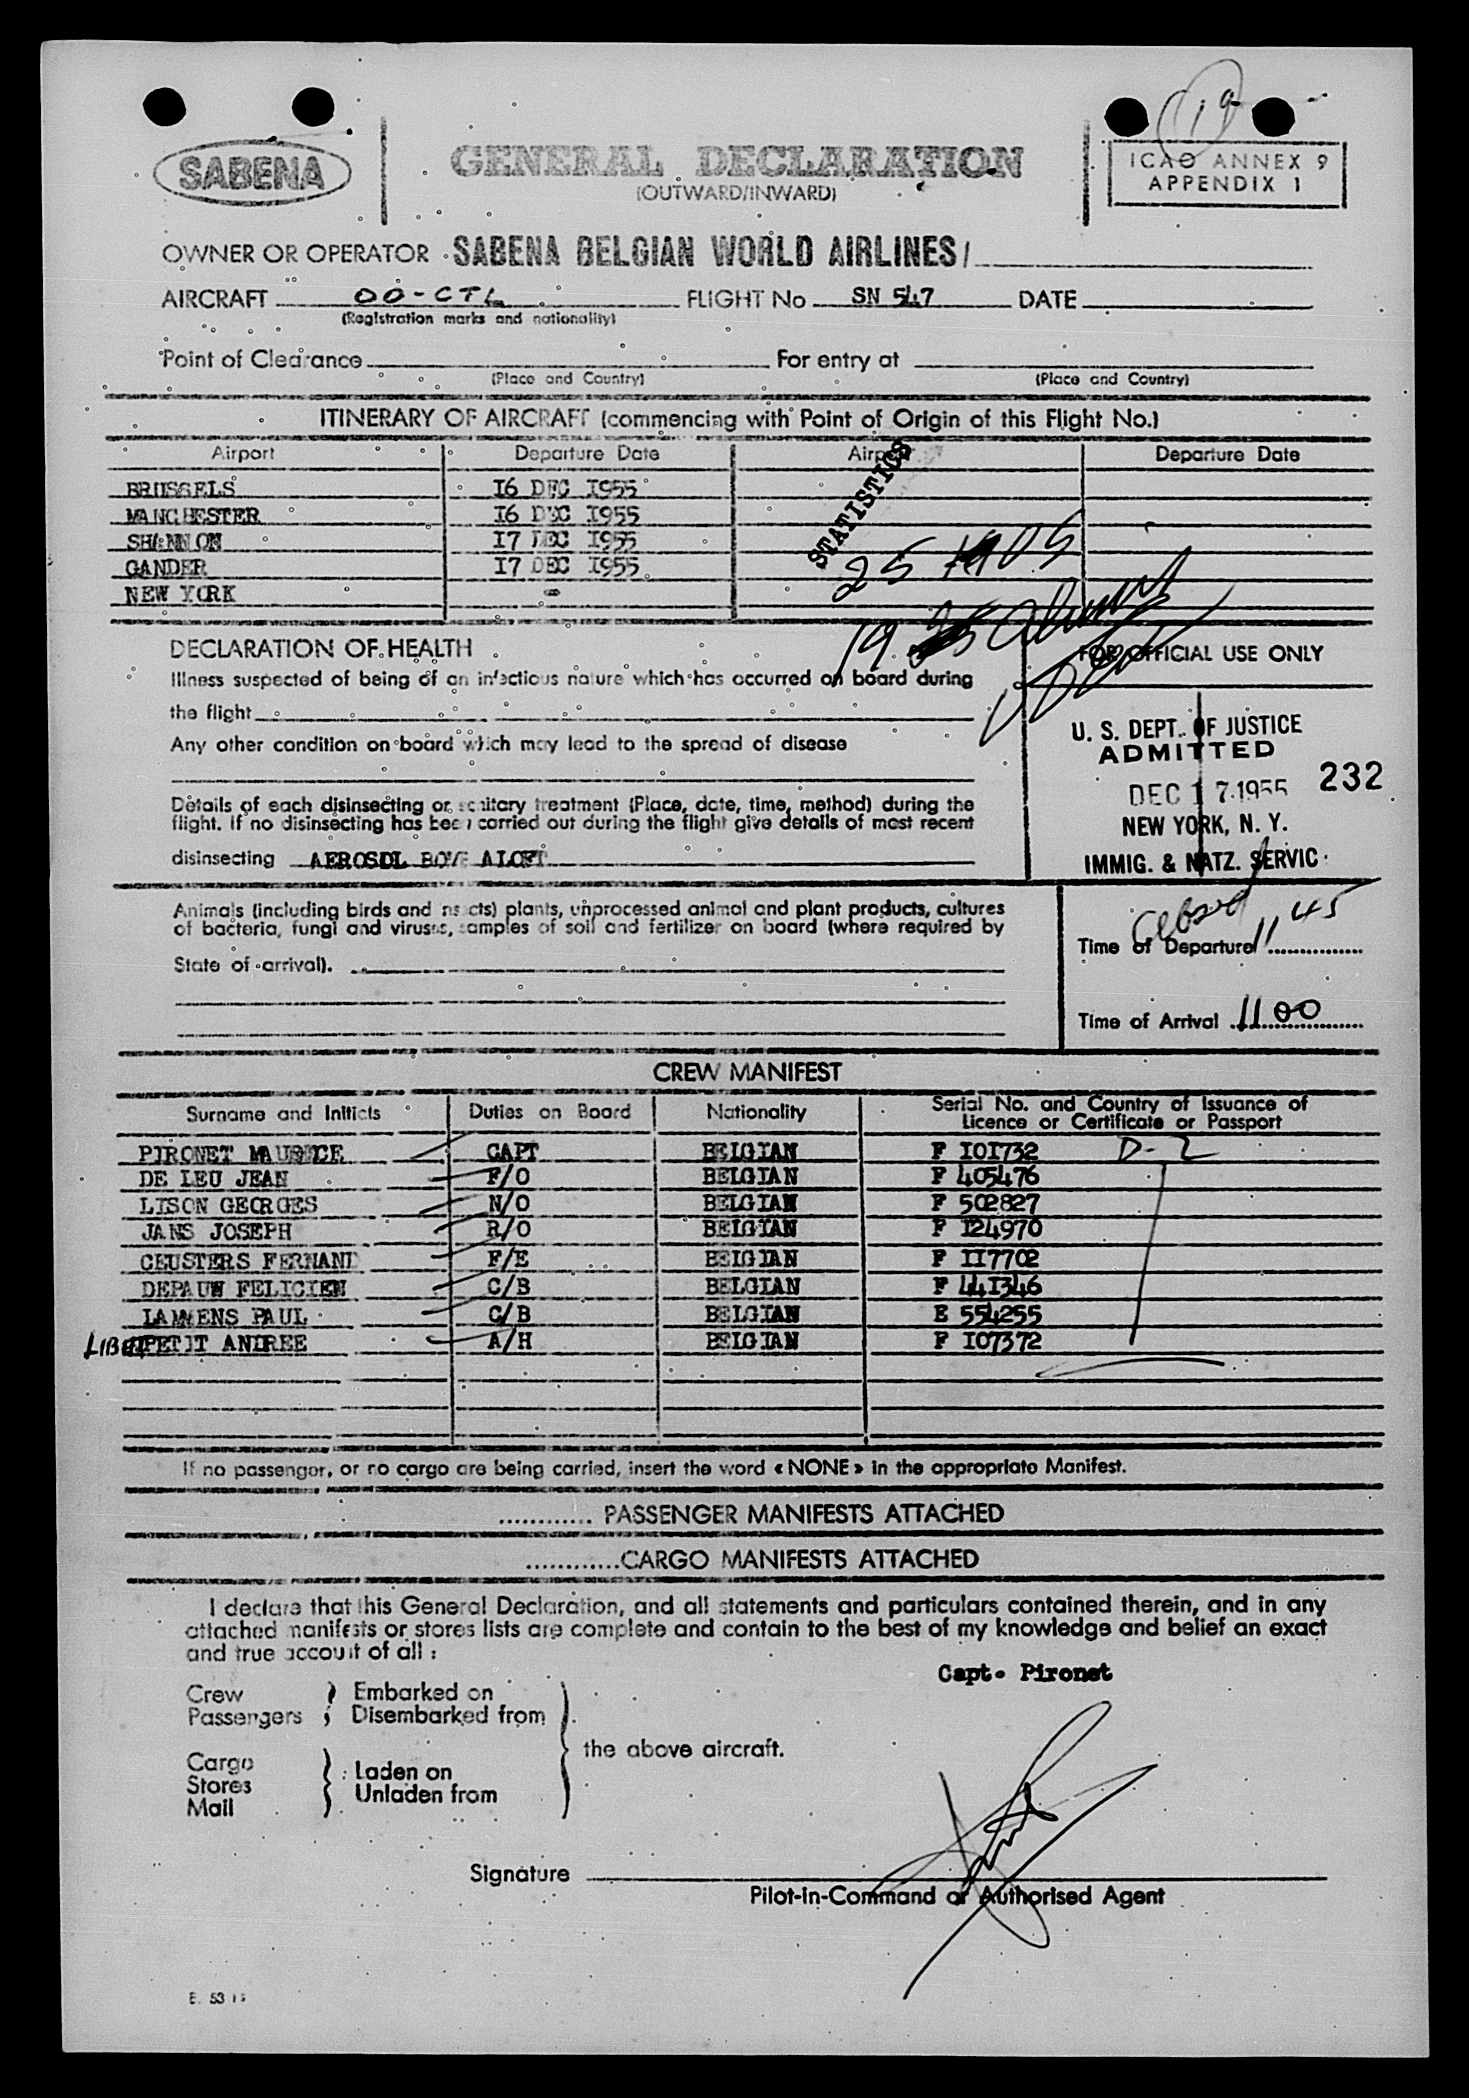 19
SABENA
GENERAL DECLARATION
(OUTWARD/INWARD)
ICAO ANNEX 9
APPENDIX 1
OWNER OR OPERATOR SABENA BELGIAN WORLD AIRLINES/
AIRCRAFT OO-CTL FLIGHT No SN 547 DATE
(Registration marks and nationality)
Point of Clearance For entry at
(Place and Country) (Place and Country)
ITINERARY OF AIRCRAFT (commencing with Point of Origin of this Flight No.)
Airport Departure Date Airport Departure Date
BRUSSELS I6 DEC I955
MANCHESTER I6 DEC I955
SHANNON I7 DEC I955
GANDER I7 DEC I955
NEW YORK -
STATISTICS
25
19
DECLARATION OF HEALTH
Illness suspected of being of an infectious nature which has occurred on board during
the flight
Any other condition on board which may lead to the spread of disease
Details of each disinsecting or sanitary treatment (Place, date, time, method) during the
flight. If no disinsecting has been carried out during the flight give details of most recent
disinsecting AEROSOL BOMB ALOFT
FOR OFFICIAL USE ONLY
U. S. DEPT. OF JUSTICE
ADMITTED
DEC 1 7 1955 232
NEW YORK, N. Y.
IMMIG. & NATZ. SERVIC
Animals (including birds and insects) plants, unprocessed animal and plant products, cultures
of bacteria, fungi and viruses, samples of soil and fertilizer on board (where required by
State of arrival).
Time of Departure 11 45
Time of Arrival 11 00
CREW MANIFEST
Surname and Initials Duties on Board Nationality Serial No. and Country of Issuance of
Licence or Certificate or Passport
PIRONET MAURICE CAPT BELGIAN F I0I732 D-2
DE LEU JEAN F/O BELGIAN F 405476
LISON GEORGES N/O BELGIAN F 502827
JANS JOSEPH R/O BELGIAN F I24970
CEUSTERS FERNAND F/E BELGIAN F II7702
DEPAUW FELICIEN C/B BELGIAN F 44I346
LAMMENS PAUL C/B BELGIAN E 554255
PETIT ANDREE A/H BELGIAN F I07372
If no passenger, or no cargo are being carried, insert the word « NONE » in the appropriate Manifest.
............ PASSENGER MANIFESTS ATTACHED
............CARGO MANIFESTS ATTACHED
I declare that this General Declaration, and all statements and particulars contained therein, and in any
attached manifests or stores lists are complete and contain to the best of my knowledge and belief an exact
and true account of all :
Capt. Pironet
Crew Embarked on
Passengers Disembarked from
the above aircraft.
Cargo
Stores Laden on
Mail Unladen from
Signature
Pilot-in-Command or Authorised Agent